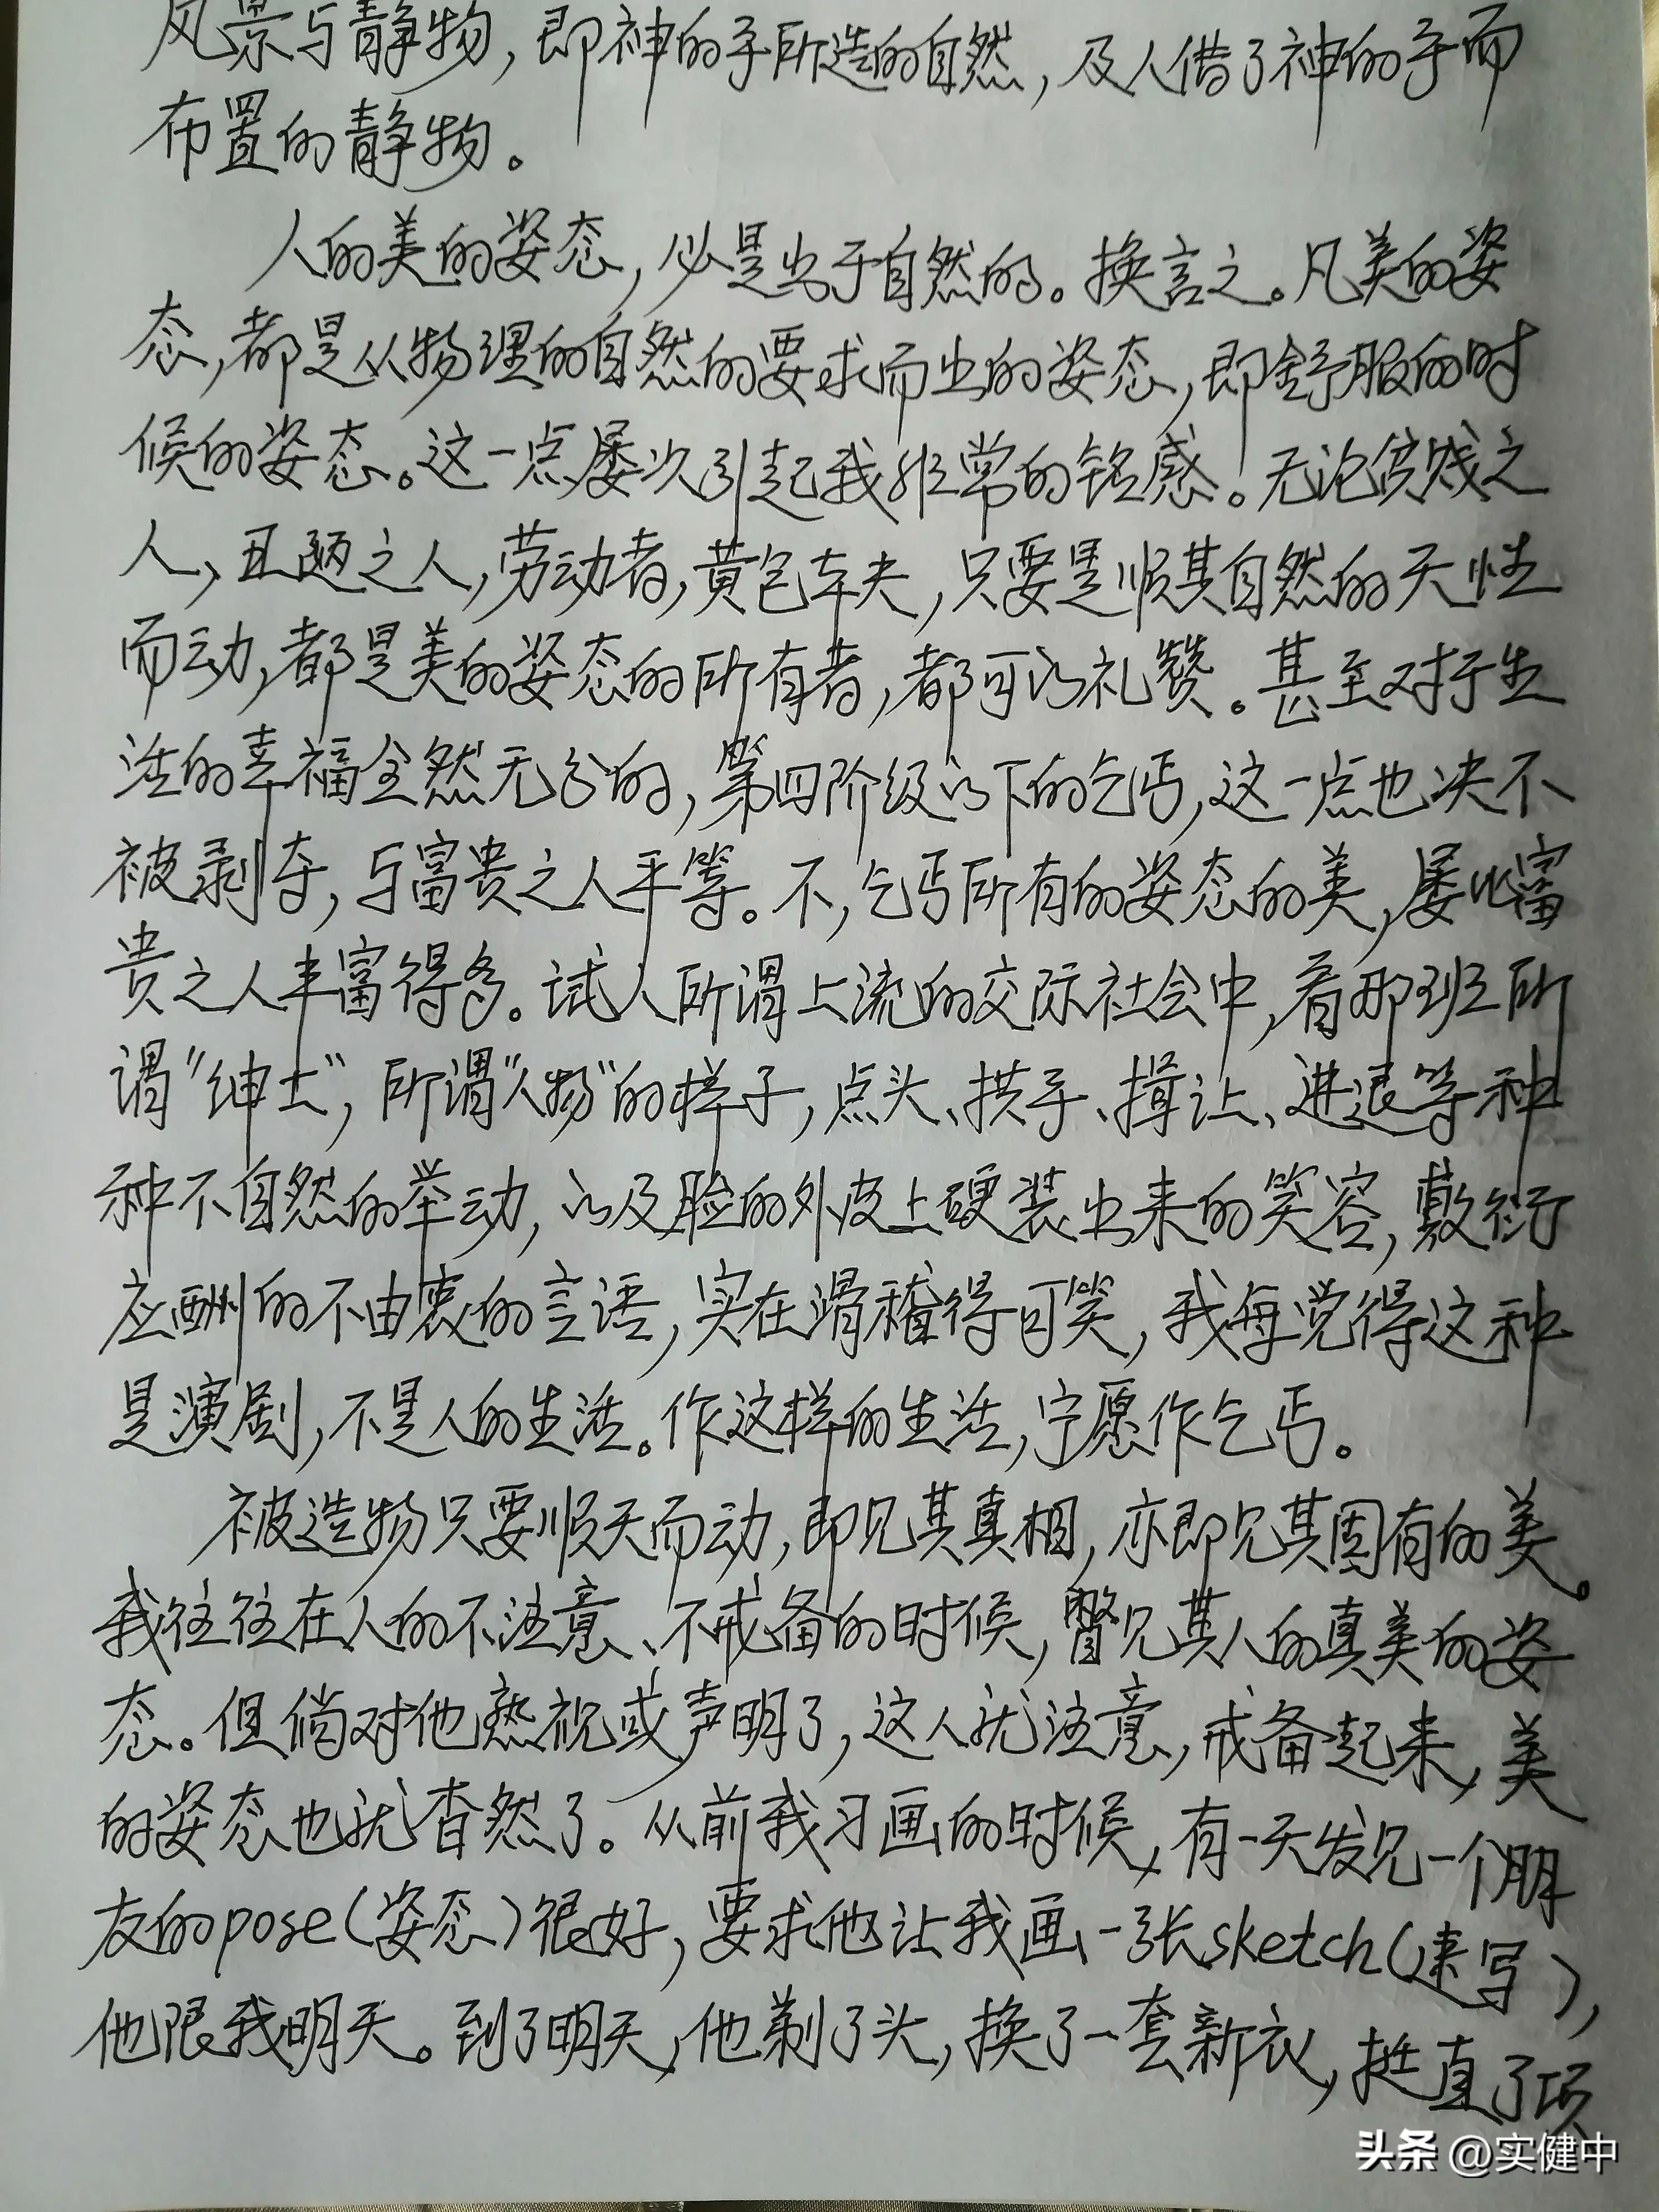 风景与静物，即神的手所造的自然，及人借了神的手而
布置的静物。
人的美的姿态，必是出于自然的。换言之。凡美的姿
态，都是从物理的自然的要求而出的姿态，即舒服的时
候的姿态。这一点屡次引起我非常的铭感。无论贫贱之
人、丑陋之人，劳动者，黄包车夫，只要是顺其自然的天性
而动，都是美的姿态的所有者，都可以礼赞。甚至对于生
活的幸福全然无分的，第四阶级以下的乞丐，这一点也决不
被剥夺，与富贵之人平等。不，乞丐所有的姿态的美，屡比富
贵之人丰富得多。试入所谓上流的交际社会中，看那班所
谓“绅士”，所谓“人物”的样子，点头、拱手、揖让、进退等种
种不自然的举动，以及脸的外皮上硬装出来的笑容，敷衍
应酬的不由衷的言语，实在滑稽得可笑，我每觉得这种
是演剧，不是人的生活。作这样的生活，宁愿作乞丐。
被造物只要顺天而动，即见其真相，亦即见其固有的美。
我往往在人的不注意、不戒备的时候，瞥见其人的真美的姿
态。但倘对他熟视或声明了，这人就注意，戒备起来，美
的姿态也就杳然了。从前我习画的时候，有一天发见一个朋
友的pose(姿态)很好，要求他让我画一张sketch(速写)，
他限我明天。到了明天，他剃了头，换了一套新衣，挺直了项
头条 @实健中